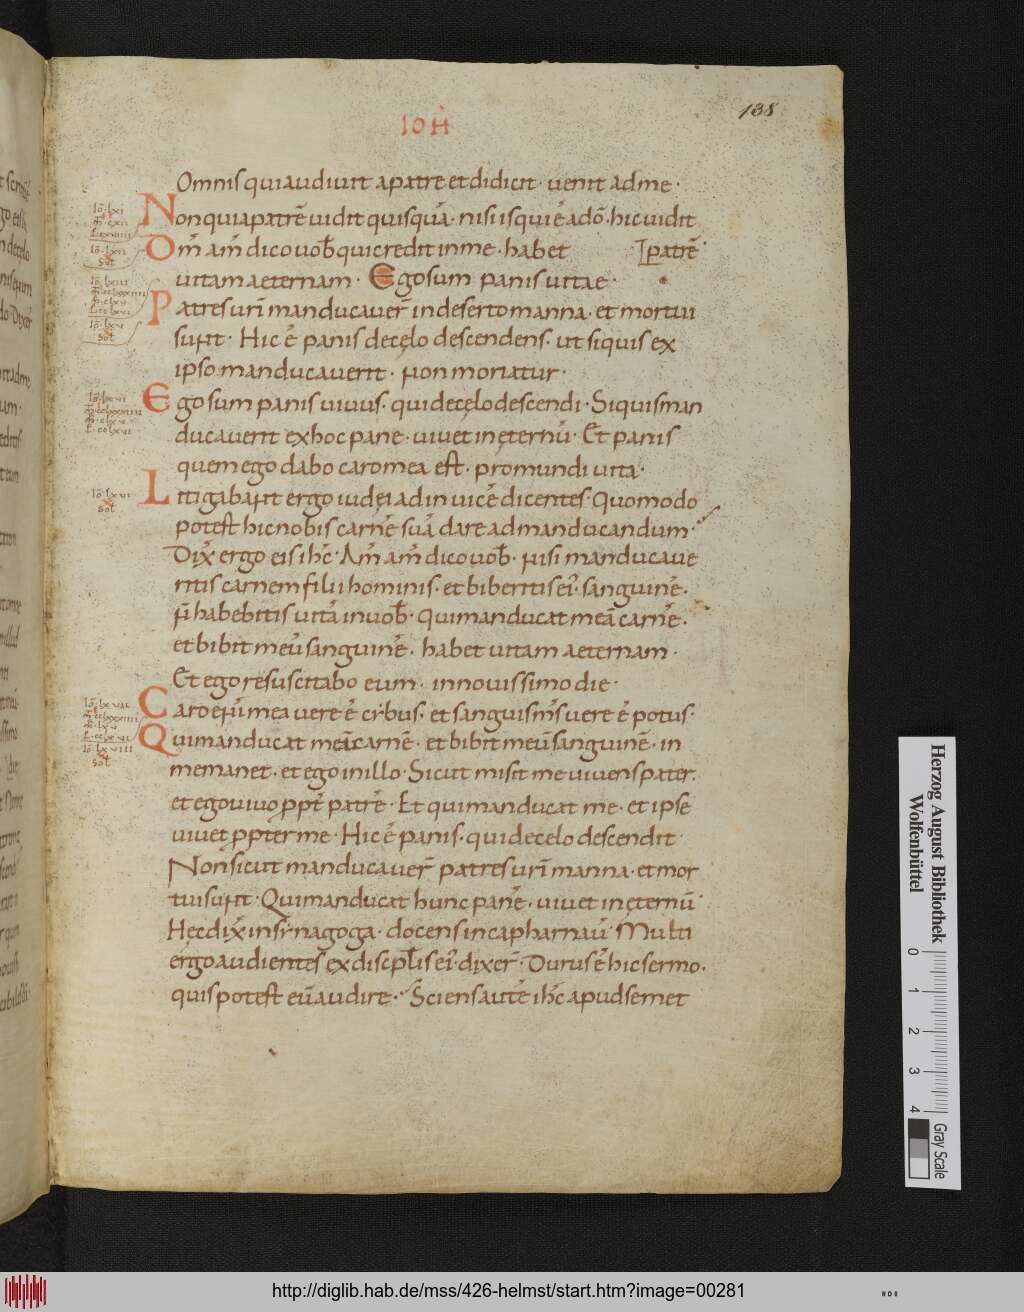 138
IOH̄
Omnis qui audiuit a patre et didicit · uenit ad me ·
Non quia patrē uidit quisquā · nisi is qui ē a dō · hic uidit
Om̄ am̄ dico uob̄ qui credit in me · habet patrē ·
uitam aeternam · Ego sum panis uitae ·
Patres uri̅ manducauer̄ in deserto manna · et mortui
sunt · Hic ē panis de cęlo descendens · ut si quis ex
ipso manducauerit · non moriatur ·
Ego sum panis uiuus · qui de cęlo descendi · Si quis man
ducauerit ex hoc pane · uiuet in ęternū · Et panis
quem ego dabo caro mea est · pro mundi uita ·
Litigabant ergo iudęi ad inuicē dicentes · Quomodo
potest hic nobis carnē suā dare ad manducandum ·
Dix̄ ergo eis ih̄c · Am̄ am̄ dico uob̄ · nisi manducaue
ritis carnem filii hominis · et biberitis ei̅ · sanguinē ·
n̄ habebitis uitā in uob̄ · Qui manducat meā carnē ·
et bibit meū sanguinē · habet uitam aeternam ·
Et ego resuscitabo eum · in nouissimo die ·
Caro eni̅ mea uere ē cibus · et sanguis m̄s uere ē potus ·
Qui manducat meā carnē · et bibit meū sanguinē · in
me manet · et ego in illo · Sicut misit me uiuens pater ·
et ego uiuo ppt̄ patrē · Et qui manducat me · et ipse
uiuet ppter me · Hic ē panis · qui de cęlo descendit ·
Non sicut manducauer̄ patres uri̅ manna · et mor
tui sunt · Qui manducat hunc panē · uiuet in ęternū ·
Hęc dix̄ in synagoga · docens in capharnaū · Multi
ergo audientes ex discipl̄is ei̅ · dixer̄ · Durus ē hic sermo ·
quis potest eū audire · Sciens autē ih̄c apud semet
Herzog August Bibliothek
Wolfenbüttel
0 1 2 3 4
Gray Scale
http://diglib.hab.de/mss/426-helmst/start.htm?image=00281